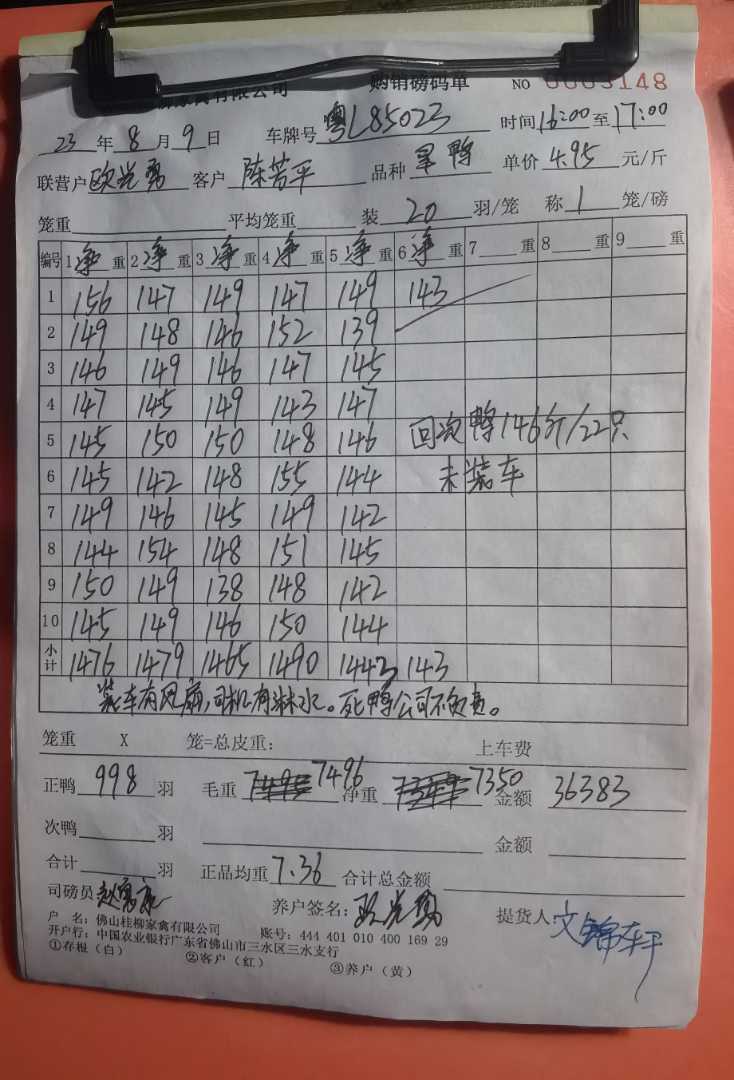 家禽有限公司 购销磅码单 NO 0003148
23 年 8 月 9 日 车牌号 粤L85023 时间 16:00 至 17:00
联营户 欧光勇 客户 陈芳平 品种 单价 4.95 元/斤
笼重 平均笼重 装 20 羽/笼 称 1 笼/磅
编号 1 净 重 2 净 重 3 净 重 4 净 重 5 净 重 6 净 重 7 重 8 重 9 重
1 156 147 149 147 149 143
2 149 148 146 152 139
3 146 149 146 147 145
4 147 145 149 143 147
5 145 150 150 148 146 回次鸭146斤/22只
6 145 142 148 155 144 未装车
7 149 146 145 149 142
8 144 154 148 151 145
9 150 149 138 148 142
10 145 149 146 150 144
小计 1476 1479 1465 1490 1443 143
装车有风扇,司机有淋水。死鸭公司不负责。
笼重 X 笼=总皮重: 上车费
正鸭 998 羽 毛重 7496 净重 7350 金额 36383
次鸭 羽 金额
合计 羽 正品均重 7.36 合计总金额
司磅员 养户签名: 欧光勇 提货人 文锦轩
户 名: 佛山桂柳家禽有限公司 账号: 444 401 010 400 169 29
开户行: 中国农业银行广东省佛山市三水区三水支行
①存根(白) ②客户(红) ③养户(黄)